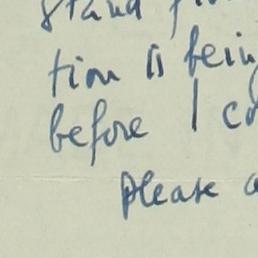 stand
tion is bein
before I co
please a